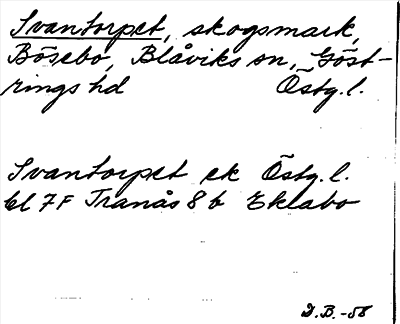 Svantorpet, skogsmark,
Bösebo, Blåviks sn, Göst-
rings hd Östg. l.
Svantorpet ek Östg. l.
bl 7F Tranås 8 b Eklabo
D.B.-58